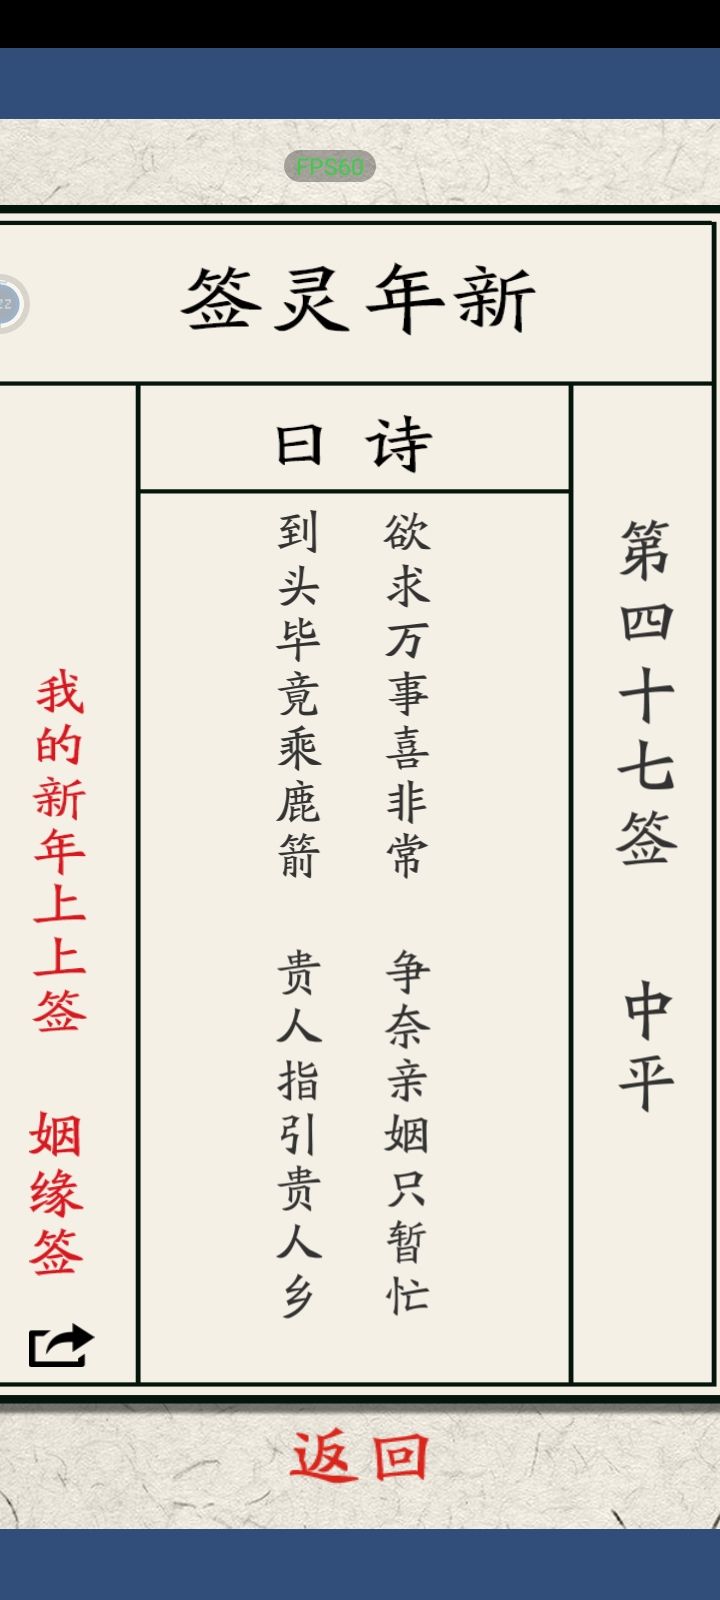 FPS60
签灵年新
第四十七签 中平
曰诗
欲求万事喜非常 争奈亲姻只暂忙
到头毕竟乘鹿箭 贵人指引贵人乡
我的新年上上签 姻缘签
返回